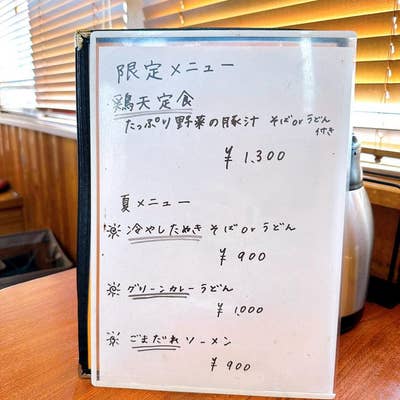 限定メニュー
鶏天定食
たっぷり野菜の豚汁 そばorうどん
付き
¥1,300
夏メニュー
冷やしたぬき そばorうどん
¥900
グリーンカレーうどん
¥1,000
ごまだれソーメン
¥900